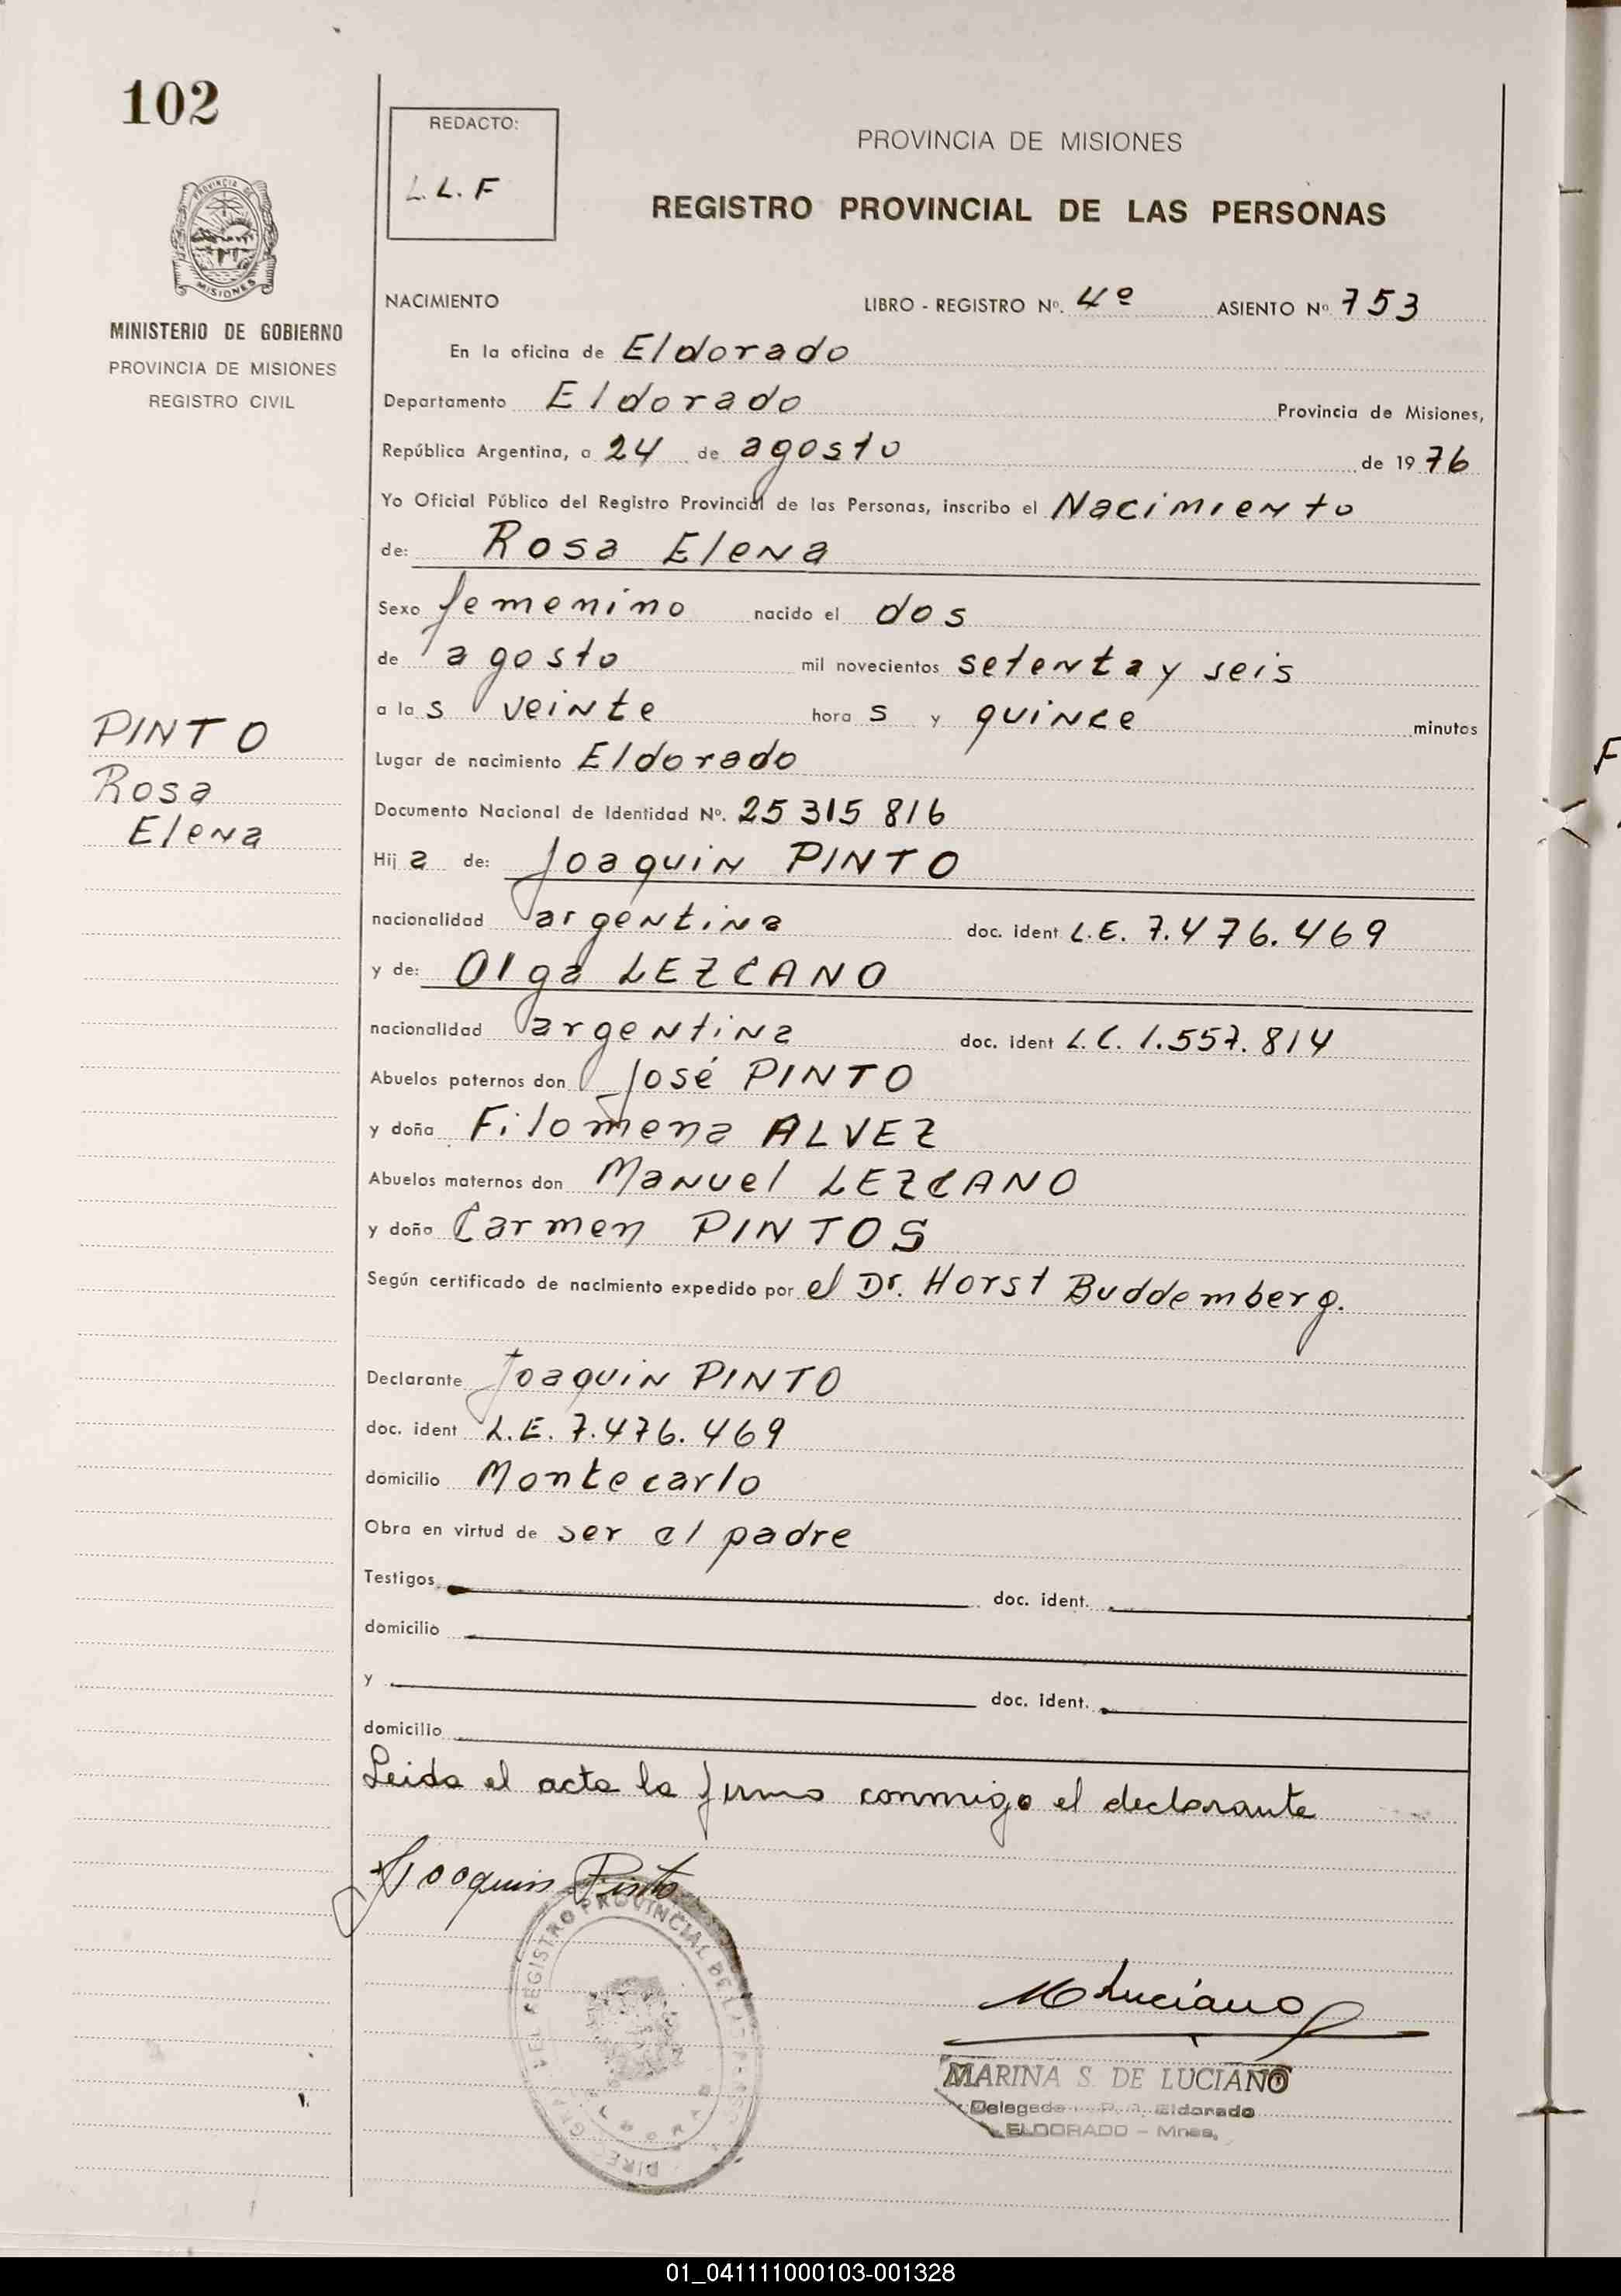 102
REDACTO:
L. L. F
PROVINCIA DE MISIONES
REGISTRO PROVINCIAL DE LAS PERSONAS
PROVINCIA DE
MISIONES
MINISTERIO DE GOBIERNO
PROVINCIA DE MISIONES
REGISTRO CIVIL
NACIMIENTO LIBRO - REGISTRO Nº. 4º ASIENTO Nº 753
En la oficina de Eldorado
Departamento Eldorado Provincia de Misiones,
República Argentina, a 24 de agosto de 1976
Yo Oficial Público del Registro Provincial de las Personas, inscribo el Nacimiento
de: Rosa Elena
Sexo femenino nacido el dos
de agosto mil novecientos setenta y seis
a las veinte horas y quince minutos
PINTO
Rosa
Elena
Lugar de nacimiento Eldorado
Documento Nacional de Identidad Nº. 25 315 816
Hija de: Joaquin PINTO
nacionalidad argentina doc. ident L.E. 7.476.469
y de: Olga LEZCANO
nacionalidad argentina doc. ident L.C. 1.557.814
Abuelos paternos don José PINTO
y doña Filomena ALVEZ
Abuelos maternos don Manuel LEZCANO
y doña Carmen PINTOS
Según certificado de nacimiento expedido por el Dr. Horst Buddemberg.
Declarante Joaquin PINTO
doc. ident L.E. 7.476.469
domicilio Montecarlo
Obra en virtud de ser el padre
Testigos doc. ident.
domicilio
y doc. ident.
domicilio
Leida el acta la firma conmigo el declarante
Joaquin Pinto
REGISTRO PROVINCIAL DE LAS
M Luciano
MARINA S. DE LUCIANO
Eldorado
ELDORADO - Mnes.
F
01_041111000103-001328